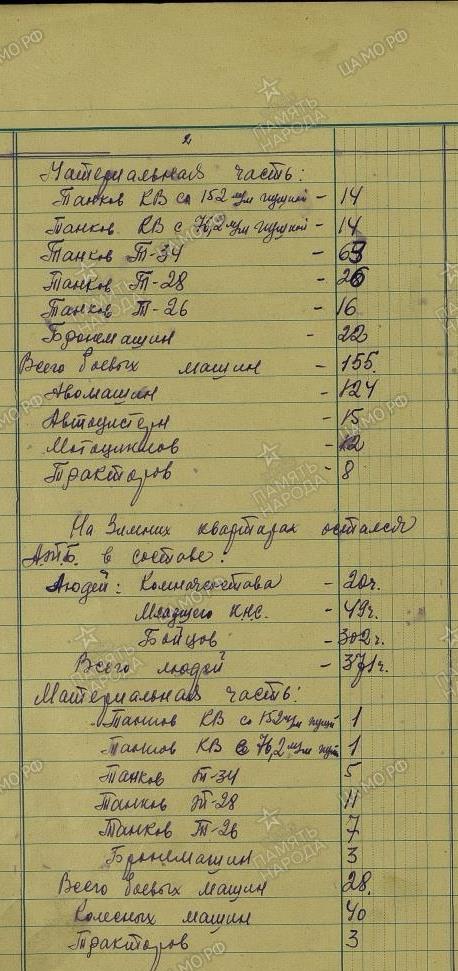 2
Материальная часть:
Танков КВ со 152 м/м пушкой - 14
Танков КВ с 76,2 м/м пушкой - 14
Танков Т-34 - 63
Танков Т-28 - 26
Танков Т-26 - 16
Бронемашин - 22
Всего боевых машин - 155.
Авомашин - 124
Автоцистерн - 15
Мотоциклов - 12
Тракторов - 8
На Зимних квартирах остался
в составе:
Людей: Комначсостава - 20ч.
Младшего кнс. - 49ч.
Бойцов - 302ч.
Всего людей - 371ч.
Материальная часть:
Танков КВ со 152 м/м пушк 1
Танков КВ с 76,2 м/м пушк 1
Танков Т-34 5
Танков Т-28 11
Танков Т-26 7
Бронемашин 3
Всего боевых машин 28.
Колесных машин 40
Тракторов 3
ПАМЯТЬ
НАРОДА
ЦАМО.РФ